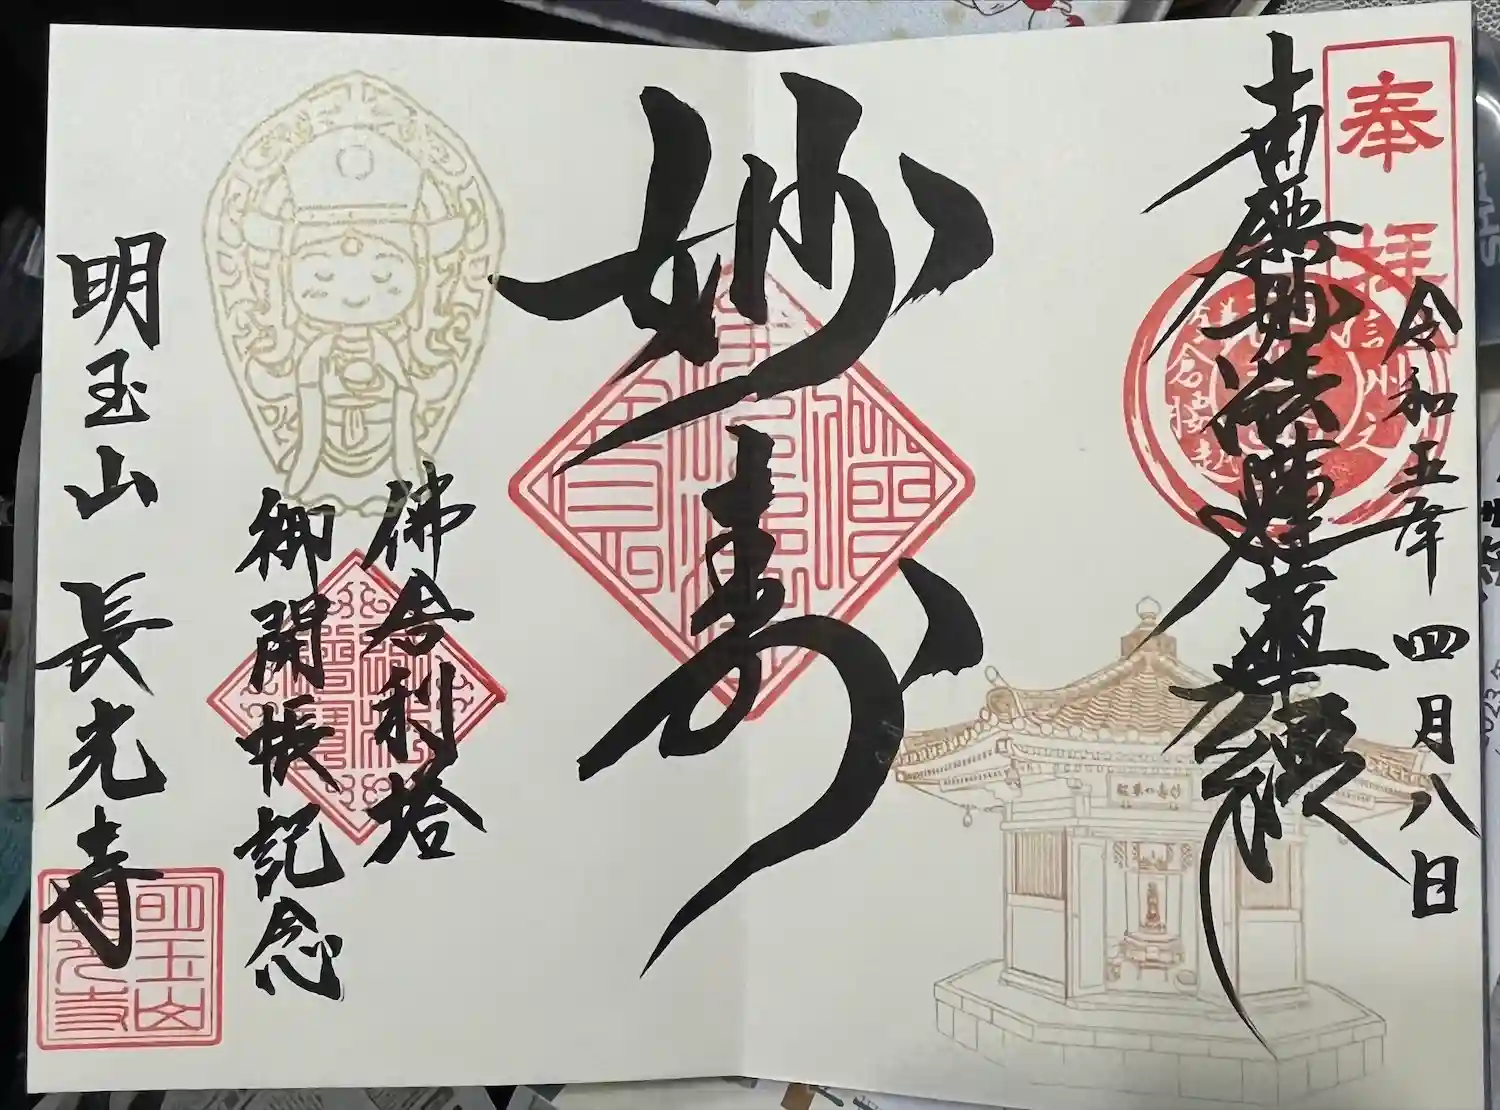 奉拝
令和五年四月八日
南無妙法蓮華經
妙寿
佛舎利塔
御開帳記念
明玉山 長光寺
明玉山
長光寺